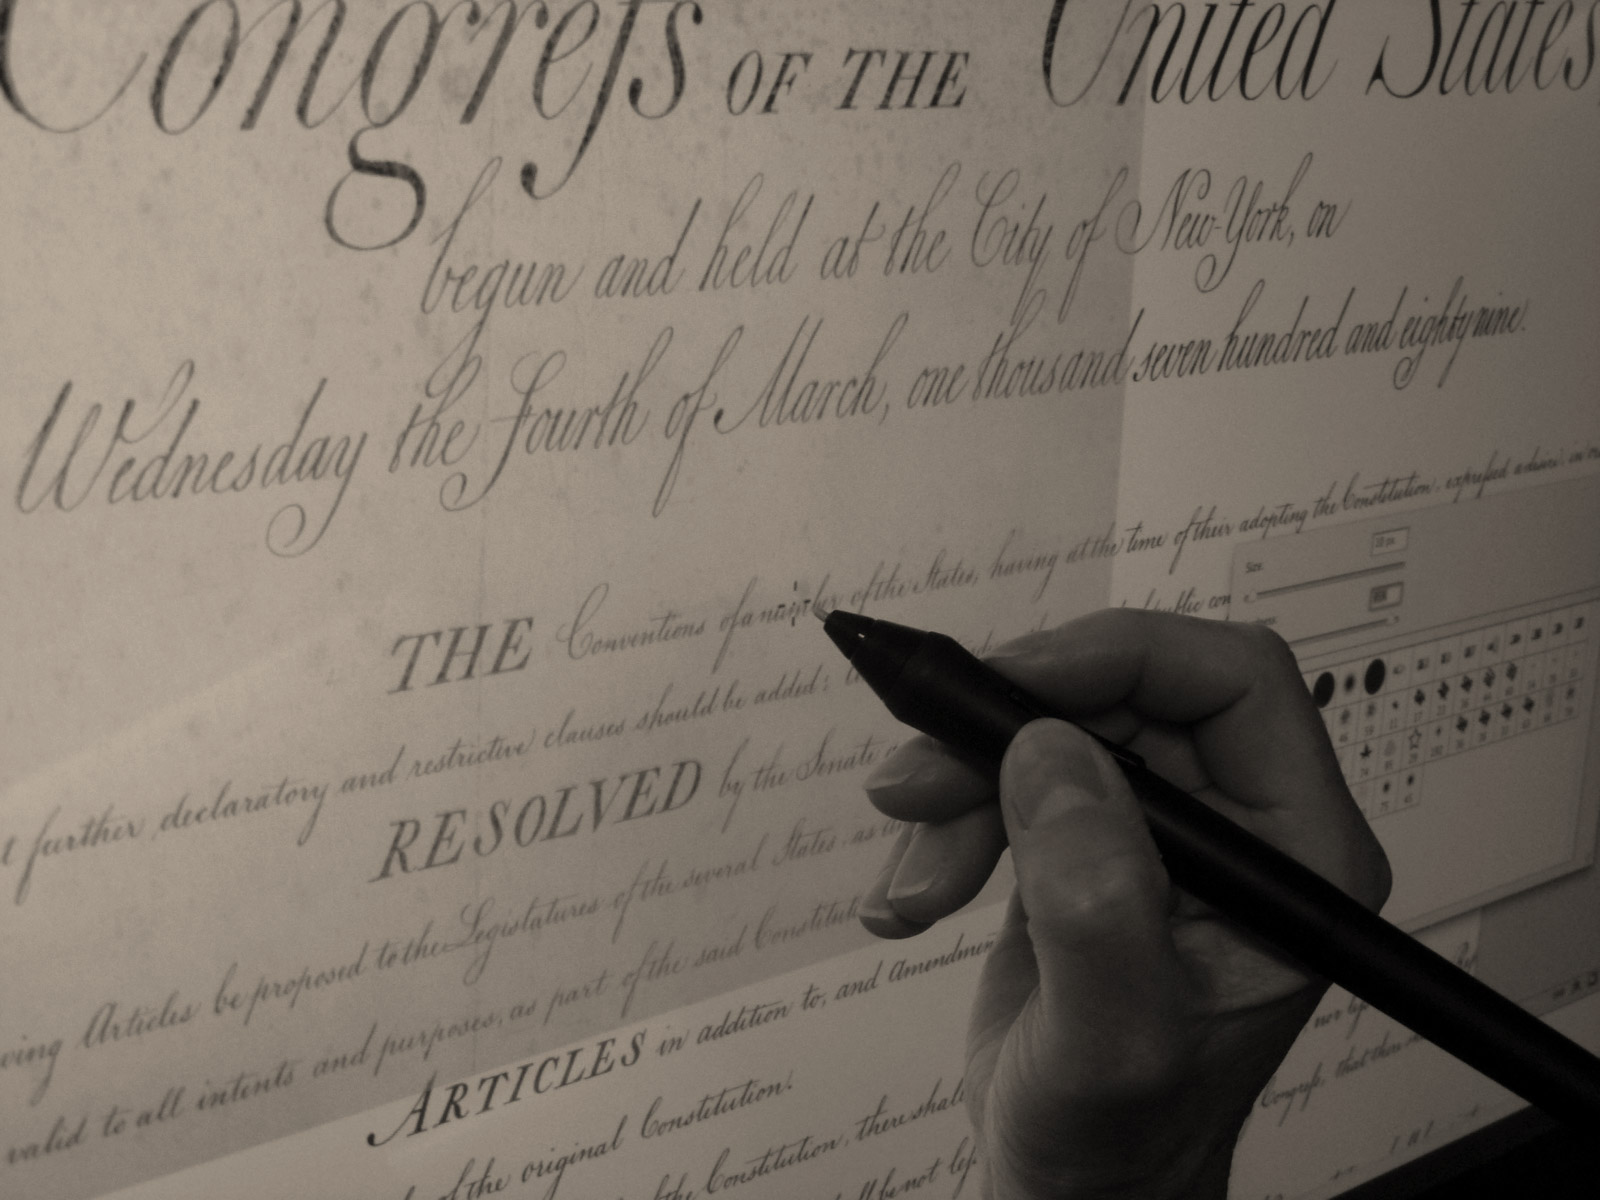 Congreſs OF THE United States
begun and held at the City of New-York, on
Wednesday the Fourth of March, one thousand seven hundred and eighty nine.
THE Conventions of a number of the States, having at the time of their adopting the Constitution, expreſsed a desire, in
further declaratory and restrictive clauses should be added:
RESOLVED by the Senate
Articles be proposed to the Legislatures of the several States, as
valid to all intents and purposes, as part of the said Constitut
ARTICLES in addition to, and Amendmen
of the original Constitution.
the Constitution, there shall
be not leſs
Size
Congreſs, that